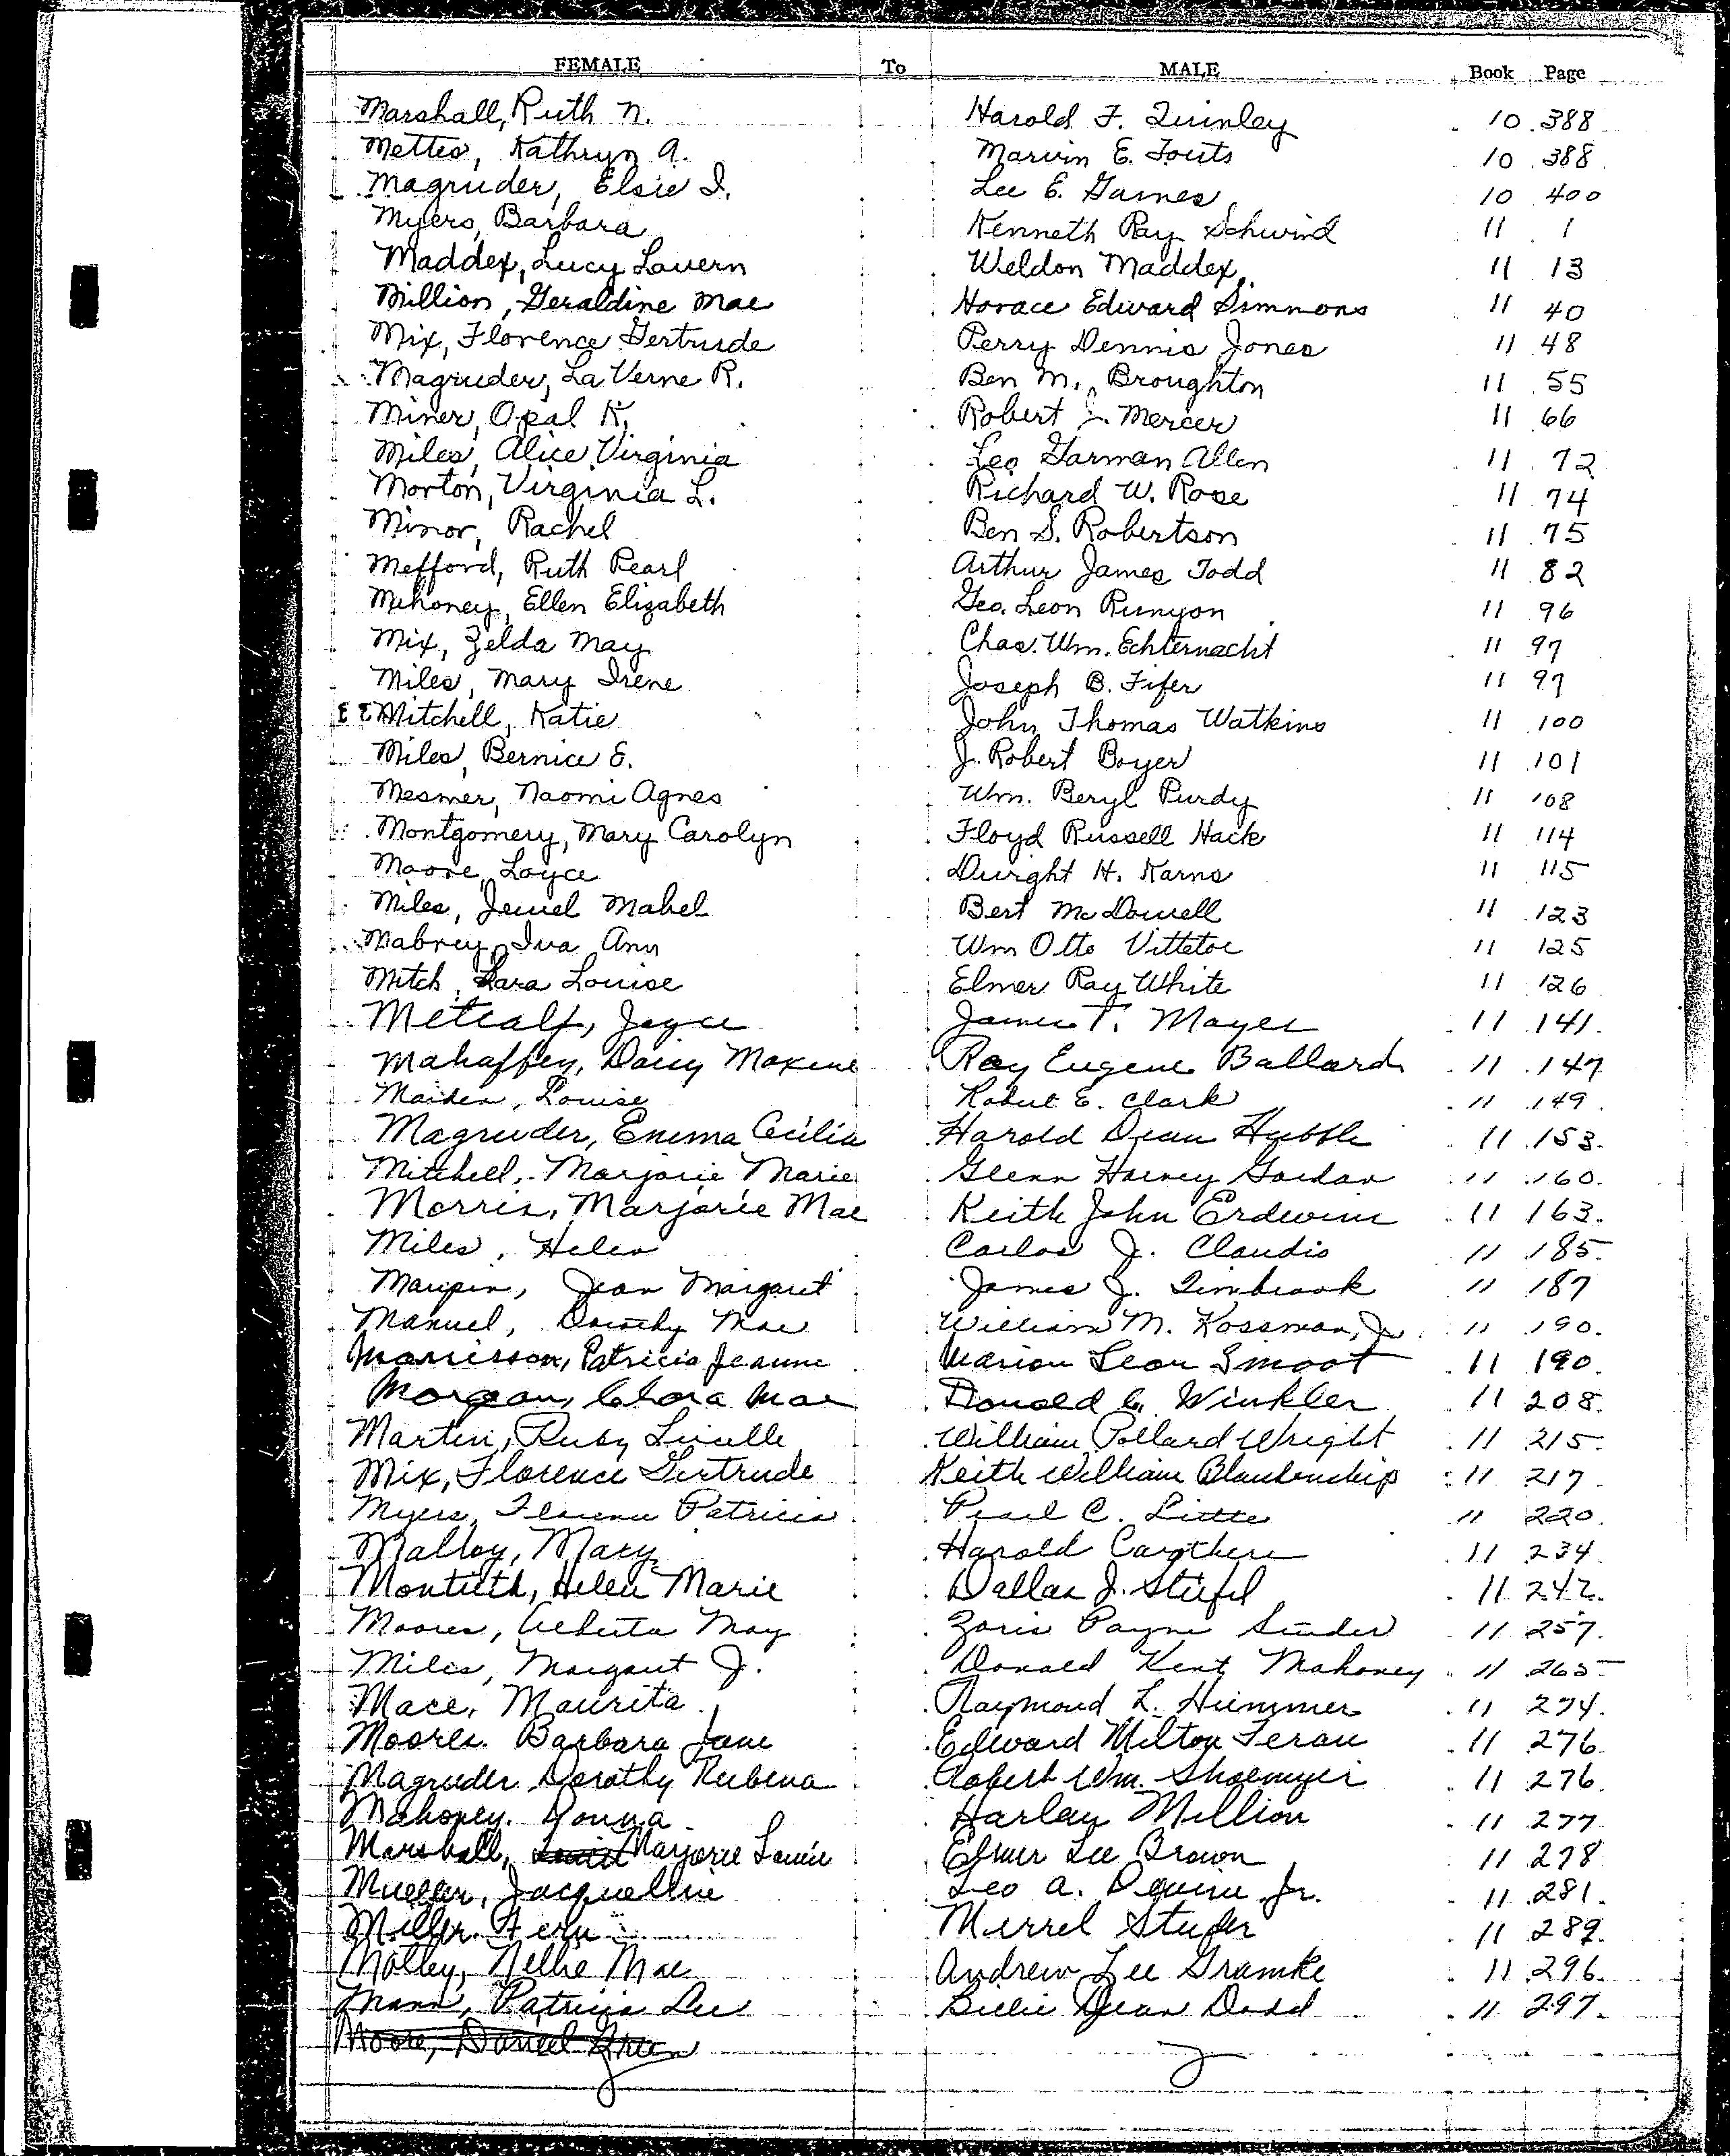 FEMALE To MALE Book Page
Marshall, Ruth N. Harold F. Quinley 10 388
Mettes, Kathryn A. Marvin E. Fouts 10 388
Magruder, Elsie I. Lee E. Garnes 10 400
Myers, Barbara Kenneth Ray Schwind 11 1
Maddex, Lucy Lavern Weldon Maddex 11 13
Million, Geraldine Mae Horace Edward Simmons 11 40
Mix, Florence Gertrude Perry Dennis Jones 11 48
Magruder, La Verne R. Ben M. Broughton 11 55
Miner, Opal K. Robert J. Mercer 11 66
Miles, Alice Virginia Leo Garman Allen 11 72
Morton, Virginia L. Richard W. Rose 11 74
Minor, Rachel Ben S. Robertson 11 75
Mefford, Ruth Pearl Arthur James Todd 11 82
Mehoney, Ellen Elizabeth Geo. Leon Runyon 11 96
Mix, Zelda May Chas. Wm. Echternacht 11 97
Miles, Mary Irene Joseph B. Fifer 11 97
Mitchell, Katie John Thomas Watkins 11 100
Miles, Bernice E. J. Robert Boyer 11 101
Mesmer, Naomi Agnes Wm. Beryl Purdy 11 108
Montgomery, Mary Carolyn Floyd Russell Hack 11 114
Moore, Loyce Dwight H. Karns 11 115
Miles, Jewel Mabel Bert McDowell 11 123
Mabrey, Iva Ann Wm Otto Vittetoe 11 125
Mitch, Lara Louise Elmer Ray White 11 126
Metcalf, Joyce James T. Mayes 11 141
Mahaffey, Daisy Maxine Ray Eugene Ballard 11 147
Maiden, Louise Robert E. Clark 11 149
Magruder, Emma Cecilia Harold Dean Hubble 11 153
Mitchell, Marjorie Marie Glenn Harvey Gordon 11 160
Morris, Marjorie Mae Keith John Erdwin 11 163
Miles, Helen Carlos J. Claudio 11 185
Maupin, Jean Margaret James J. Timbrook 11 187
Manuel, Dorothy Mae William M. Kossman, Jr. 11 190
Morrisson, Patricia Jeanne Marion Leon Smoot 11 190
Morgan, Clora Mae Donald C. Winkler 11 208
Martin, Ruby Lucille William Pollard Wright 11 215
Mix, Florence Gertrude Keith William Blankenship 11 217
Myers, Florence Patricia Pearl C. Little 11 220
Malloy, Mary Harold Carothers 11 234
Montieth, Helen Marie Dallas J. Stiefel 11 242
Moores, Alberta May Zoris Payne Snider 11 257
Miles, Margaret J. Donald Kent Mahoney 11 265
Mace, Maurita Raymond L. Hummer 11 274
Moores. Barbara Jane Edward Milton Feran 11 276
Magruder Dorothy Rubena Robert Wm. Shoemyer 11 276
Mahoney. Donna Harlan Million 11 277
Marshall, Marjorie Louise Elmer Lee Brown 11 278
Mueller, Jacqueline Leo A. Devine Jr. 11 281
Miller. Fern Merrel Studer 11 289
Motley, Nellie Mae Andrew Lee Gramke 11 296
Mann, Patricia Lee Billie Dean Dodd 11 297
Moore, Daniel Green